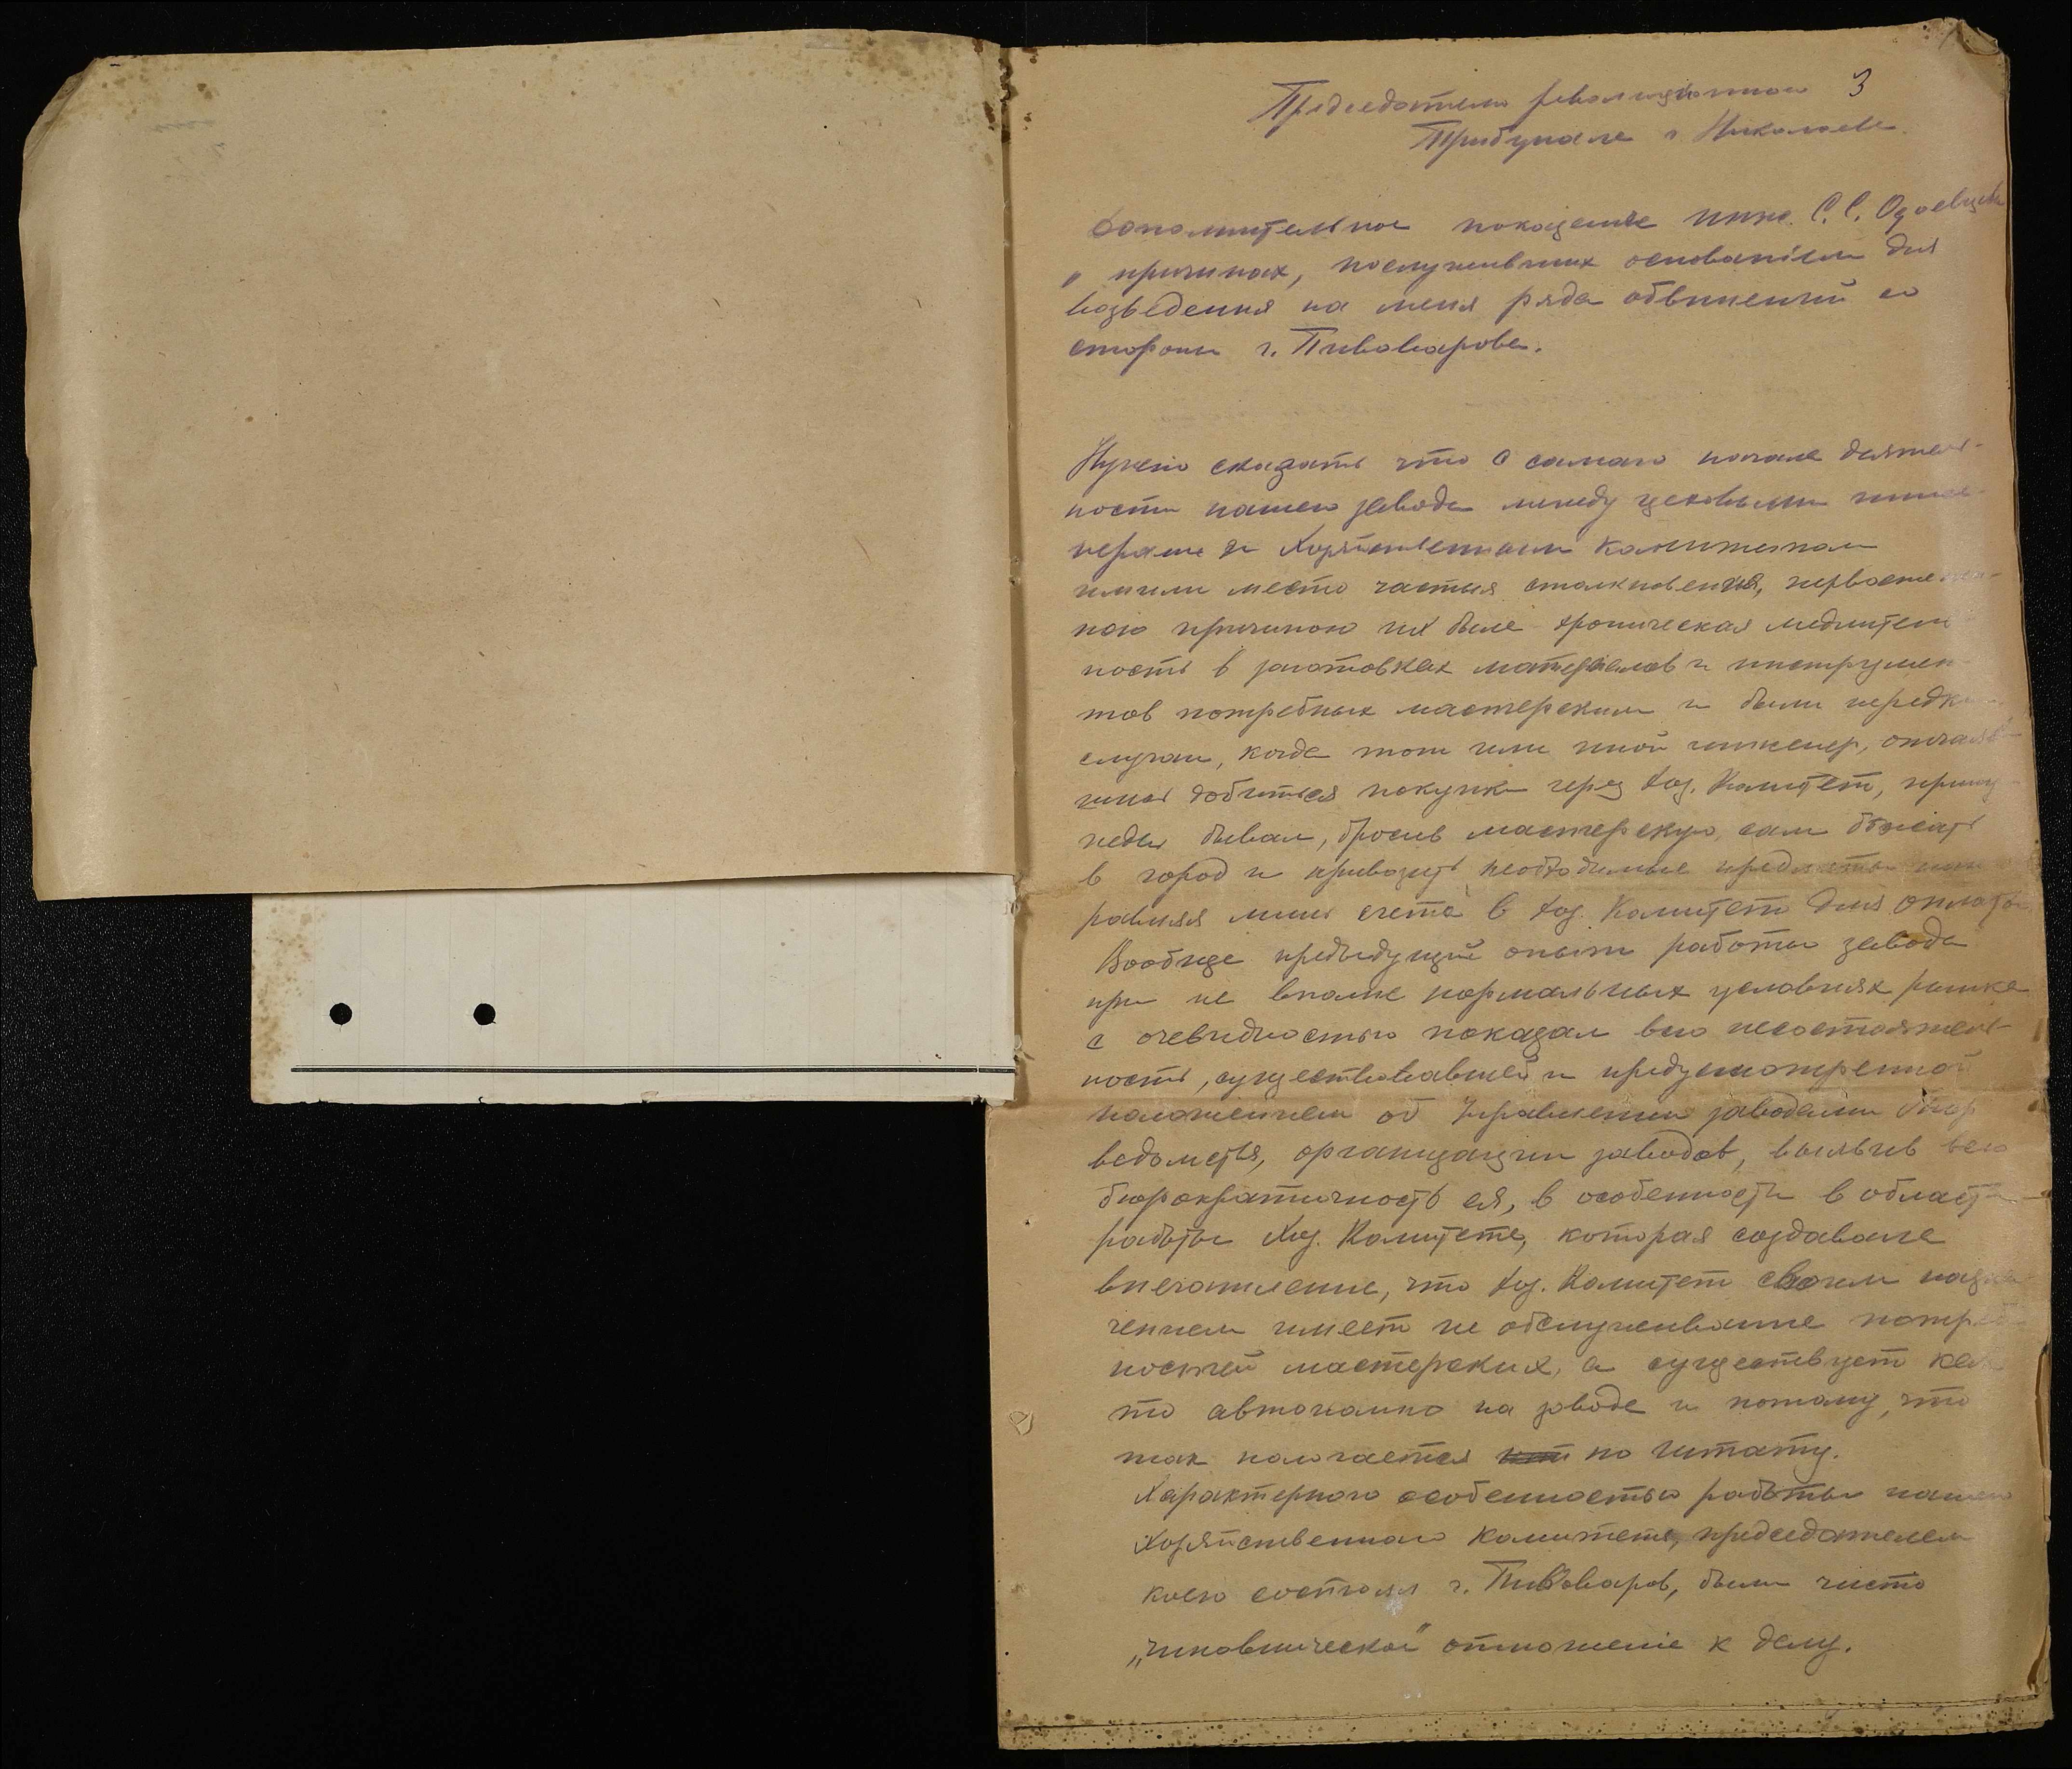 3
Председателю революционного
Трибунала г. Николаева.
Дополнительное показание инж. С.С. Одоевцева
о причинах, послуживших основаніем для
возведения на меня ряда обвинений со
стороны г. Пивоварова.
Нужно сказать что с самаго начала деятель-
ности нашего завода между цеховыми инже-
нерами и Хозяйственным комитетом
имели место частыя столкновения, первостепен-
ною причиною их была хроническая медлитель
ность в заготовках материалов и инструмен-
тов потребных мастерским и были нередки
случаи, когда тот или иной инженер, отчаяв-
шись добиться покупки через Хоз. Комитет, прину-
жден бывал, бросив мастерскую, сам бежать
в город и привозить необходимые предметы нап
равляя лишь счета в Хоз. Комитет для оплаты
Вообще предыдущий опыт работы завода
при не вполне нормальных условиях рынка
с очевидностью показал всю несостоятель-
ность, существовавшей и предусмотренной
положением об Управлении заводами Мор
ведомства, организации заводов, выявив всю
бюрократичность ея, в особенности в области
работы Хоз. Комитета, которая создавала
впечатление, что Хоз. Комитет своим назна
чением имеет не обслуживание потреб
ностей мастерских, а существует как
то автономно на заводе и потому, что
так полагается по штату.
Характерною особенностью работы нашего
Хозяйственнаго комитета, председателем
коего состоял г. Пивоваров, было чисто
„чиновническое" отношеніе к делу.